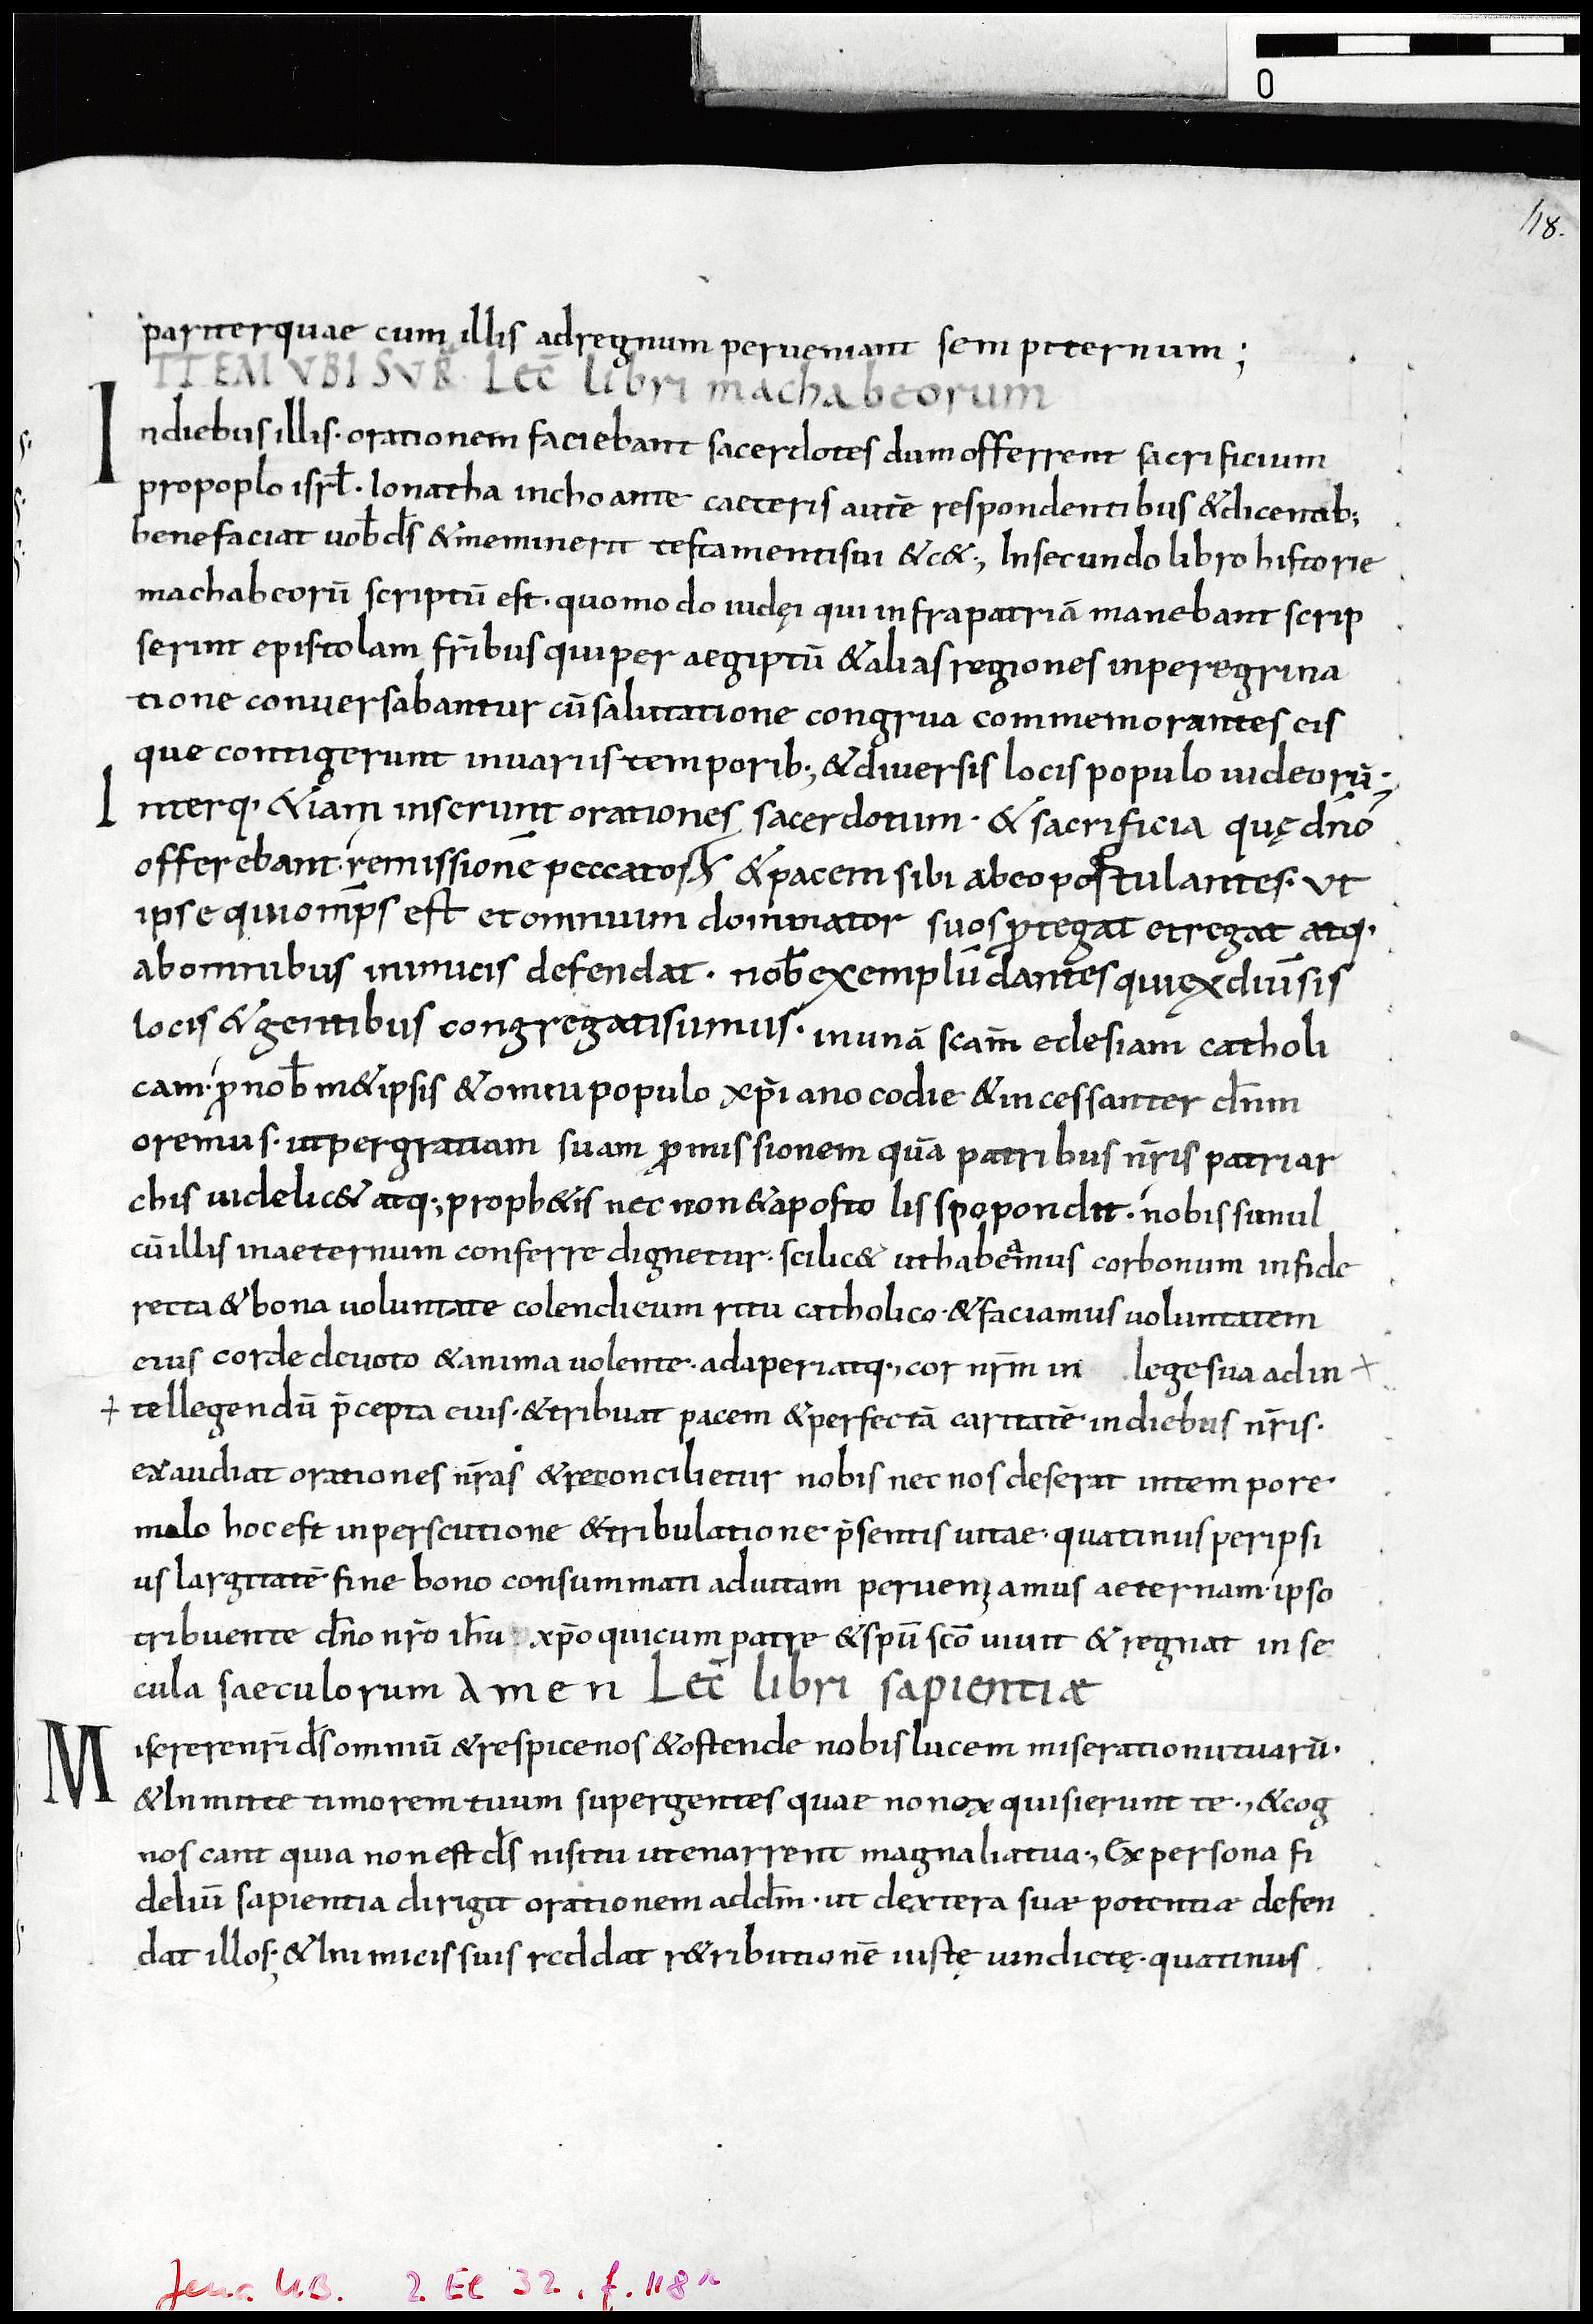 0
118.
pariterquae cum illis adregnum perueniant sempiternum;
ITEM VBI SVP̄. Lec̄ libri machabeorum
Indiebus illis· orationem faciebant sacerdotes dum offerrent sacrificium
propoplo isrł· Ionatha inchoante caeteris autē respondentibus &dicentib;
benefaciat uob̄ ds̄ &meminerit testamentisui &c&·, Insecundo libro historie
machabeorū scriptū est· quomodo iudęi qui infrapatriā manebant scrip
serint epistolam fr̄ibus quiper aegiptū &alias regiones inperegrina
tione conuersabantur cū salutatione congrua commemorantes eis
que contigerunt inuariis temporib·, &diuersis locis populo iudeorū·,
Interq· &iam inserunt orationes sacerdotum· & sacrificia quę dn̄o
offerebant· remissionē peccatoꝝ &pacem sibi abeo postulantes· vt
ipse quiomp̄s est et omnium dominator suos ꝓtegat etregat atq·
abomnibus inimicis defendat· nob̄ exemplū dantes quiex diuīsis
locis &gentibus congregatisumus· inunā scam̄ eclesiam catholi
cam· ꝓnob̄ m&ipsis &omtu populo xp̄iano codie &incessanter dn̄m
oremus· utpergratiam suam ꝓmissionem quā patribus nr̄is patriar
chis uidelic& atq·, proph&is nec non &aposto lis spopondit· nobis simul
cū illis inaeternum conferre dignetur· scilic& uthabeamus corbonum infide
recta &bona uoluntate colendieum ritu catholico· &faciamus uoluntatem
eius corde deuoto &anima uolente· adaperiatq·, cor nr̄m in legesua adin
tellegendū p̄cepta eius· &tribuat pacem &perfectā caritatē indiebus nr̄is·
exaudiat orationes nr̄as &reconcilietur nobis nec nos deserat intempore·
malo hocest inperscutione &tribulatione p̄sentis uitae· quatinus peripsi
us largitatē fine bono consummati aduitam perueniamus aeternam· ipso
tribuente dn̄o nr̄o ih̄u xp̄o quicum patre &spū scō uiuit & regnat in se
cula saeculorum Amen Lec̄ libri sapientiæ
Misererenr̄i ds̄ omniū &respicenos &ostende nobis lucem miserationūtuarū·
&Inmitte timorem tuum supergentes quae nonex quisierunt te·, &cog
noscant quia nonest ds̄ nisitu utenarrent magnaliatua·, Expersona fi
deliū sapientia dirigit orationem addm̄· ut dextera suæ potentiæ defen
dat illos· &Inimicis suis reddat r&ributionē iustę uindictę· quatinus
Jena U.B. 2. El 32. f. 118r